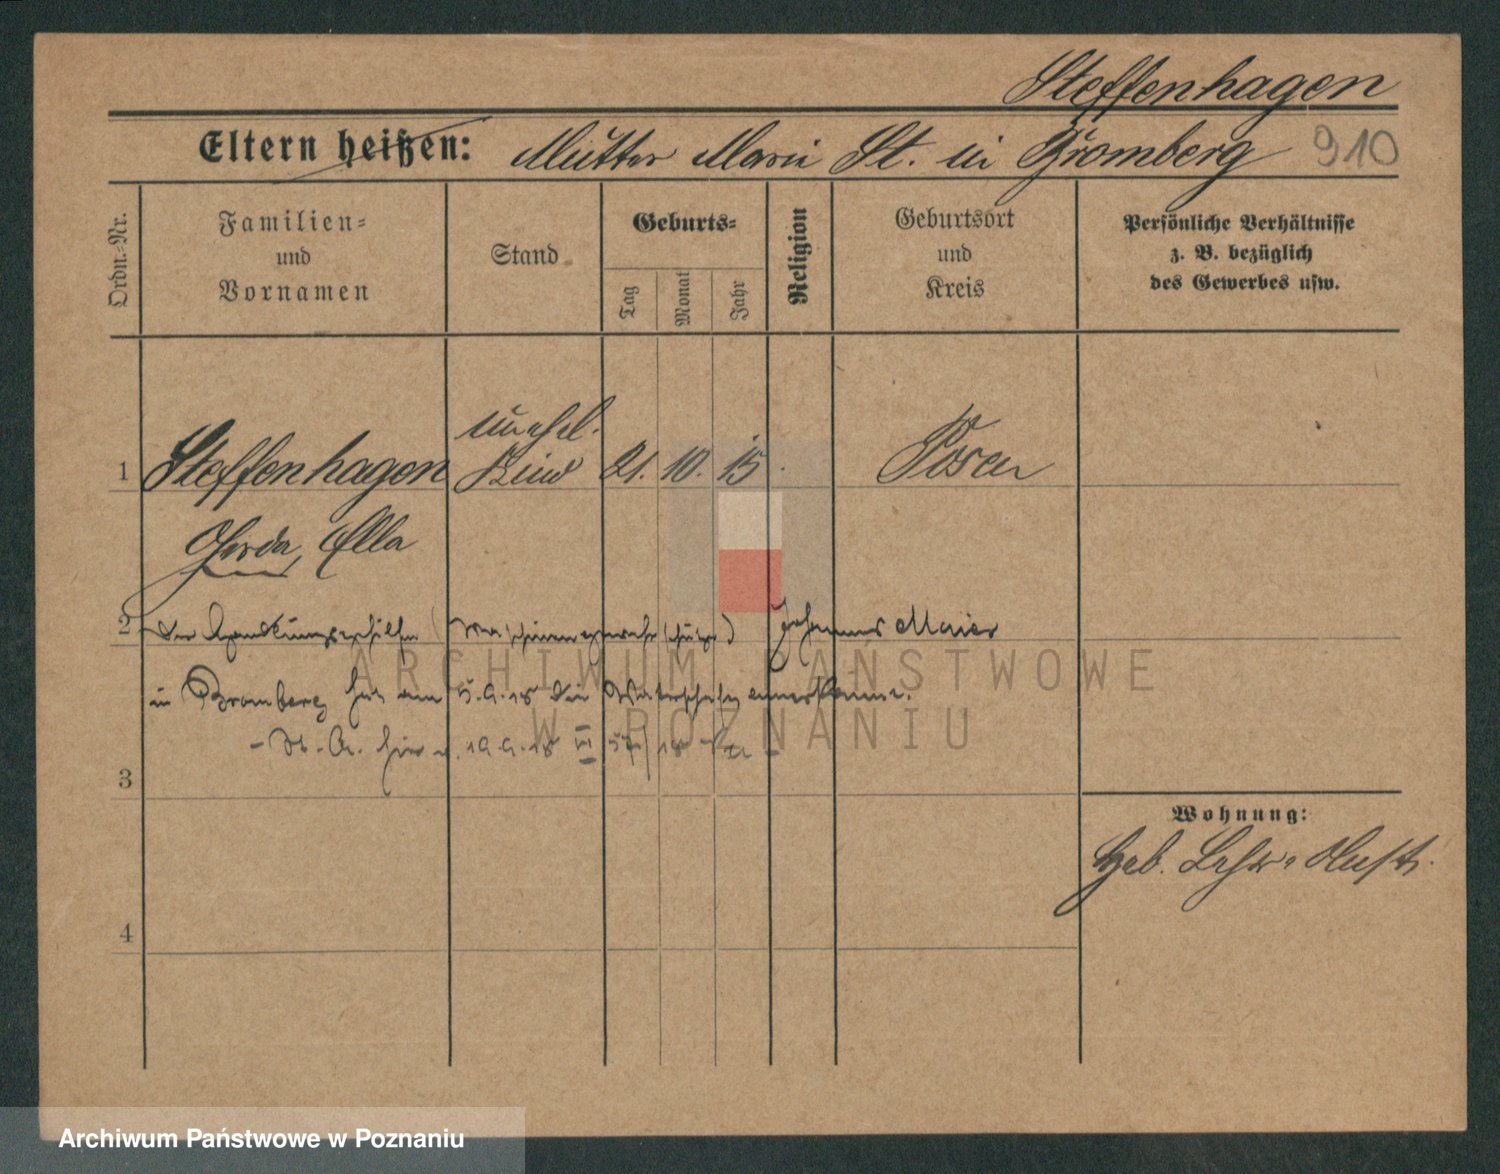 Steffenhagen
Eltern heißen: Mutter Marie St. in Bromberg 910
Ordn.-Nr.
Familien-
und
Vornamen
Stand
Geburts-
Tag
Monat
Jahr
Religion
Geburtsort
und
Kreis
Persönliche Verhältnisse
z. B. bezüglich
des Gewerbes usw.
unehel.
1 Steffenhagen Kind 21. 10. 15. Posen
Gerda, Ella
2 Der Handlungsgehilfe (Maschinengewehrschütze) Johannes Maier
in Bromberg hat am 5.9.18 die Vaterschaft anerkannt.
St. A. hier v. 19.9.18 III 57/18
ARCHIWUM PAŃSTWOWE
W POZNANIU
3
Wohnung:
Heb. Lehr-Anst.
4
Archiwum Państwowe w Poznaniu